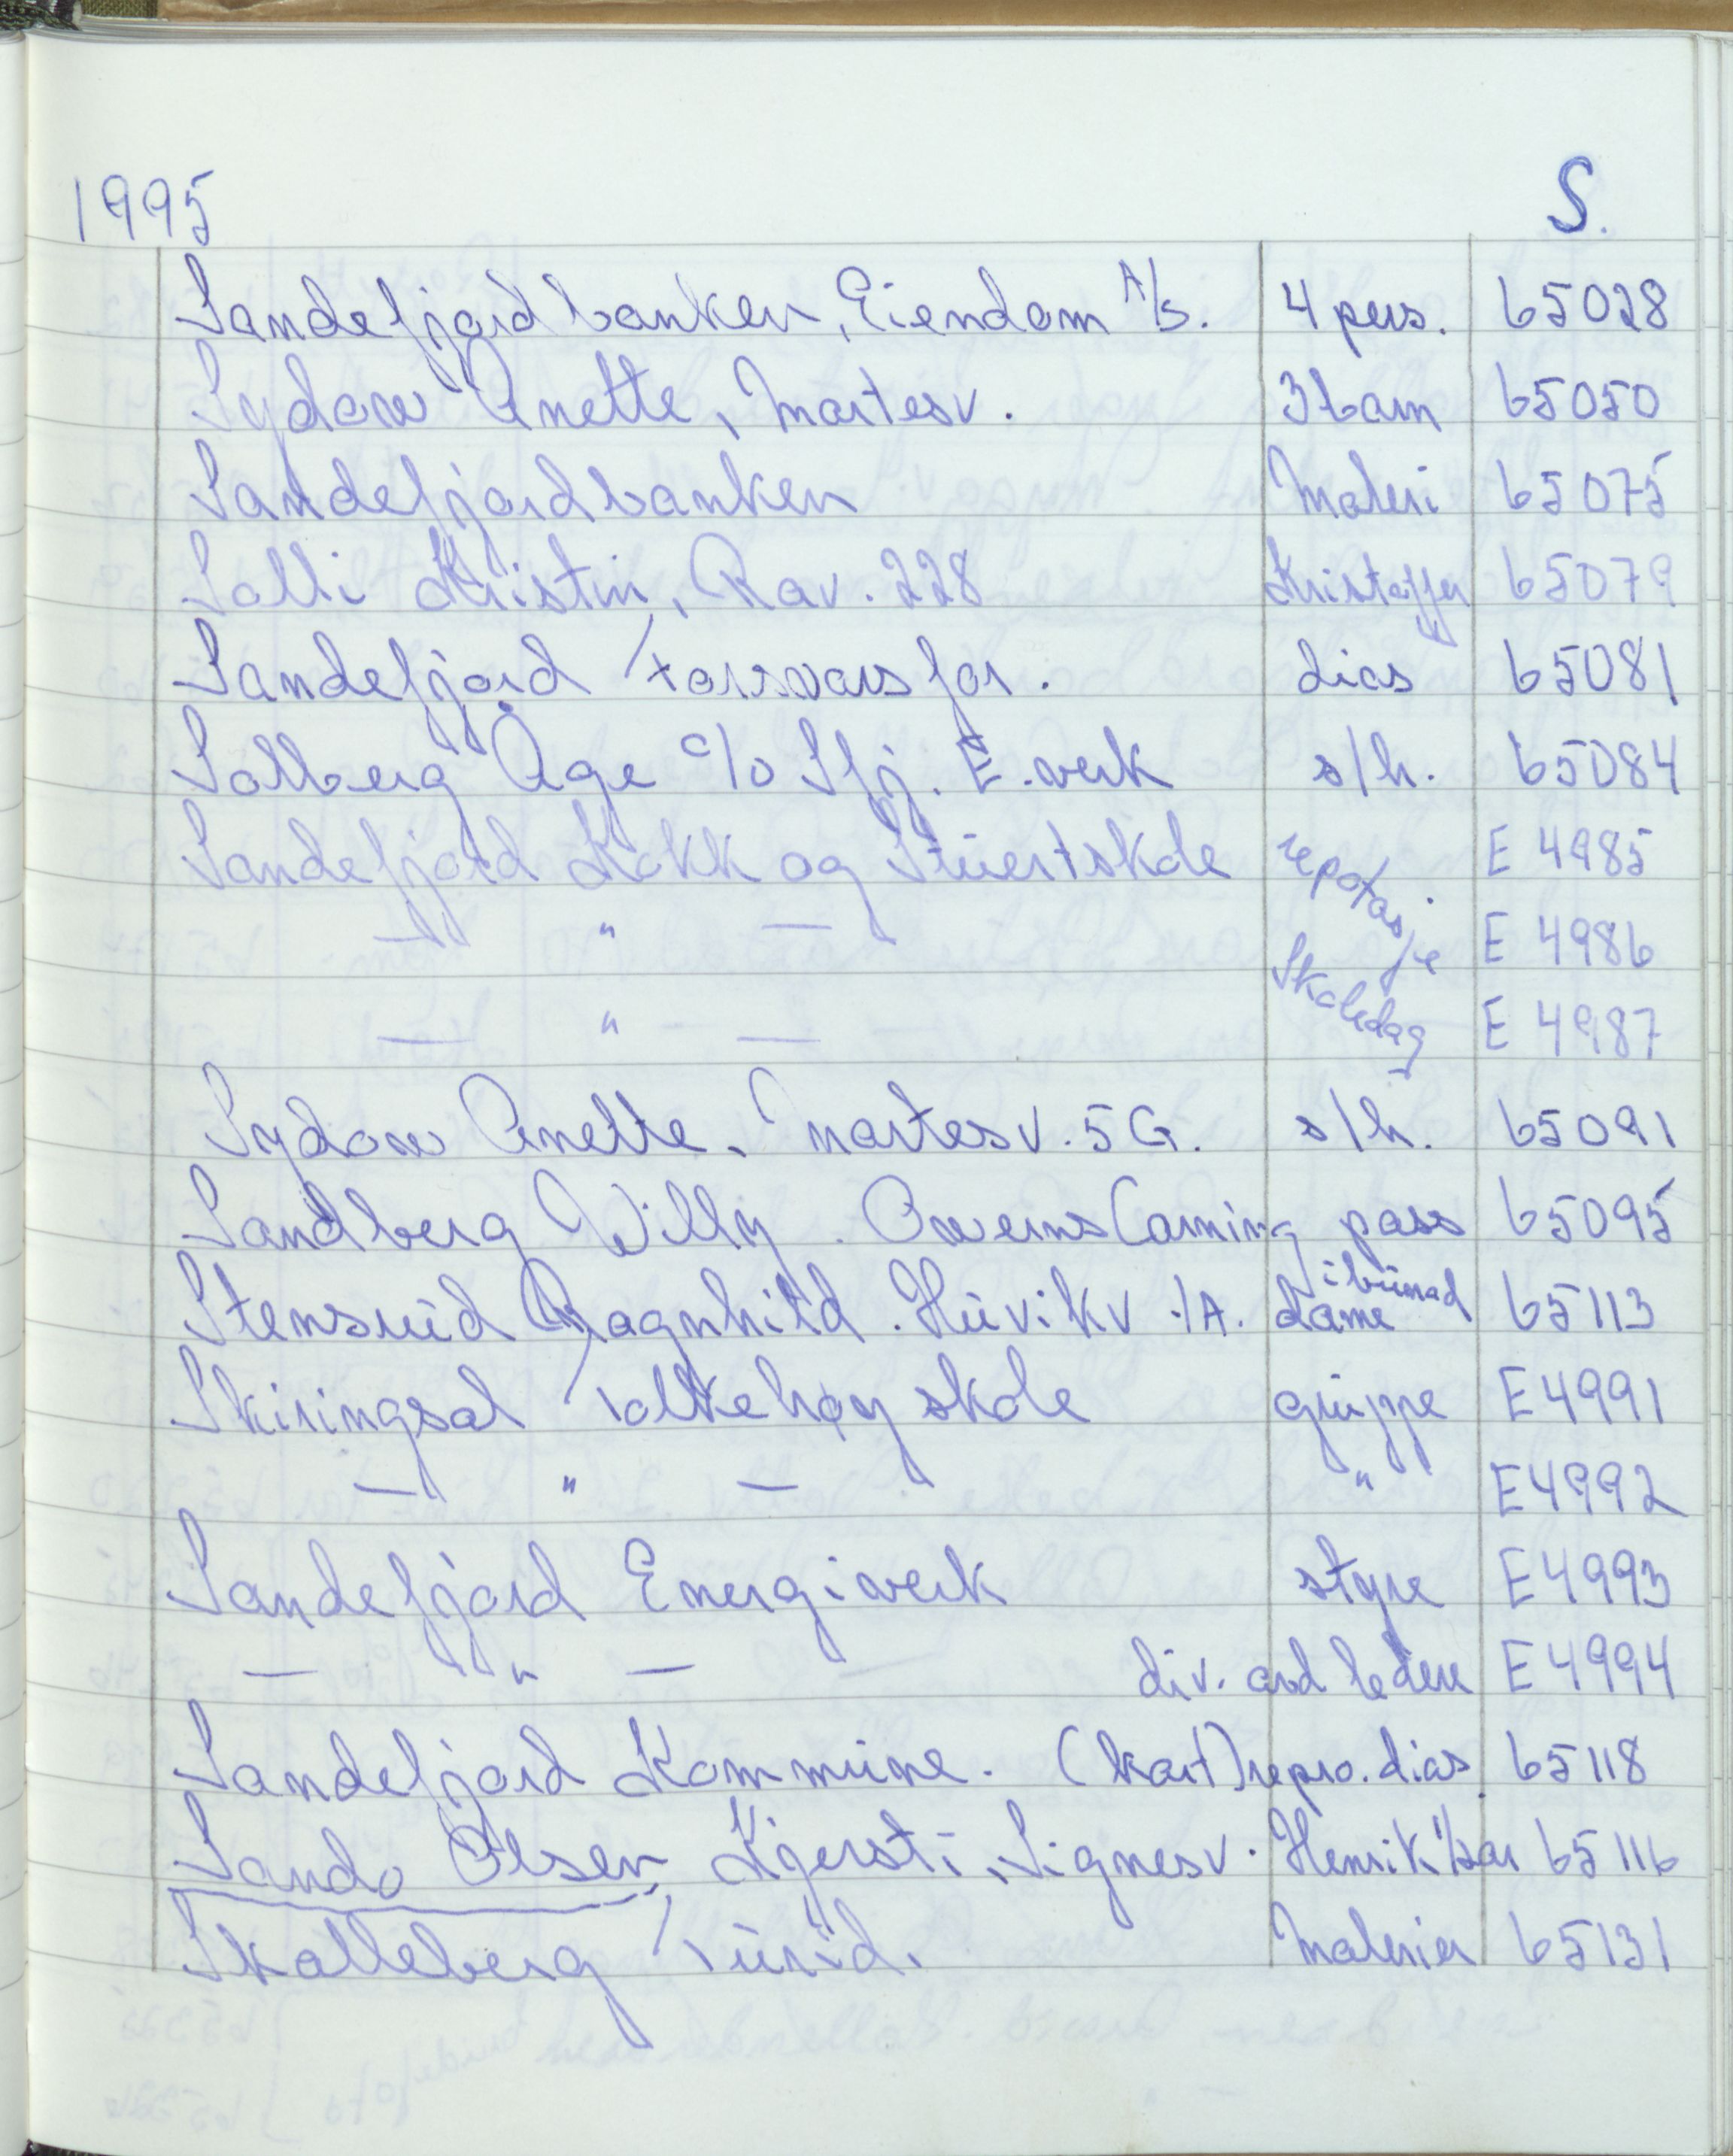 1995 S.
Sandefjordbanken, Eiendom A/S. 4 pers. 65028
Sydow Anette, Martesv. 3 barn 65050
Sandefjordbanken Maleri 65075
Solli Kristin, Rav. 228 Kristoffer 65079
Sandefjord Forsvarsfor. dias 65081
Solberg Åge c/o Sfj. E.verk s/h. 65084
Sandefjord Kokk og Stuertskole repotasje E 4985
— " — Skoledag E 4986
— " — E 4987
Sydow Anette, Martesv. 5G. s/h. 65091
Sandberg Willy. Owens Corning pass 65095
Stensrud Ragnhild. Huvikv. 1A. dame i bunad 65113
Skiringsal Folkehøyskole gruppe E4991
— " — " E4992
Sandefjord Energiverk styre E4993
— " — div. avd ledere E4994
Sandefjord Kommune. (kart) repro. dias 65118
Sando Olsen, Kjersti, Signesv. Henrik 1/2 år 65116
Skalleberg Turid. Malerier 65131